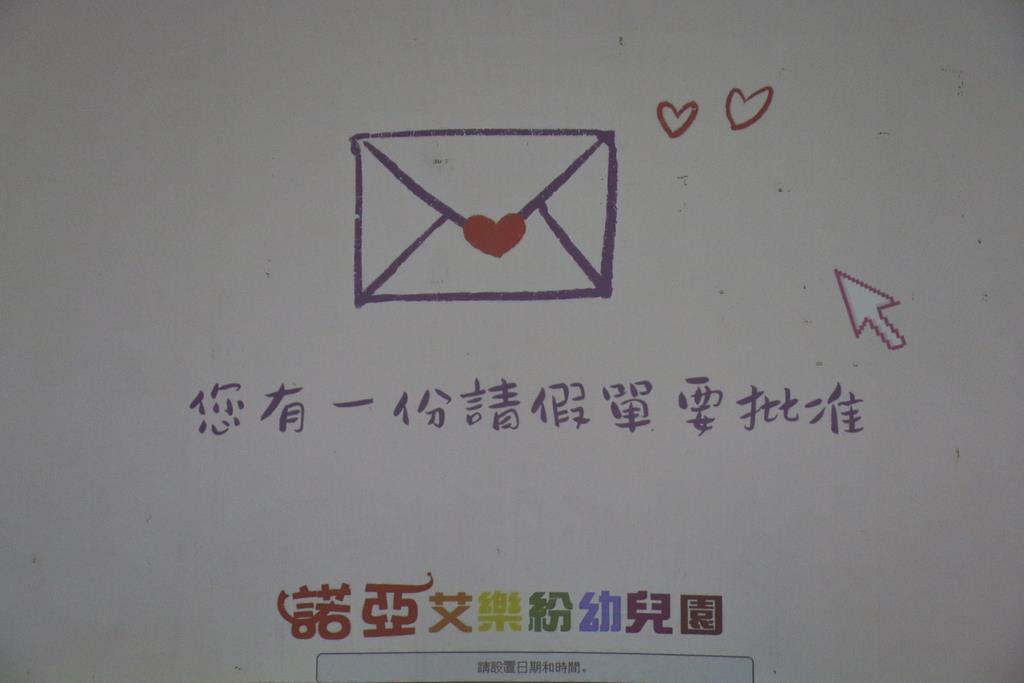 您有一份請假單要批准
諾亞艾樂紛幼兒園
請設置日期和時間。